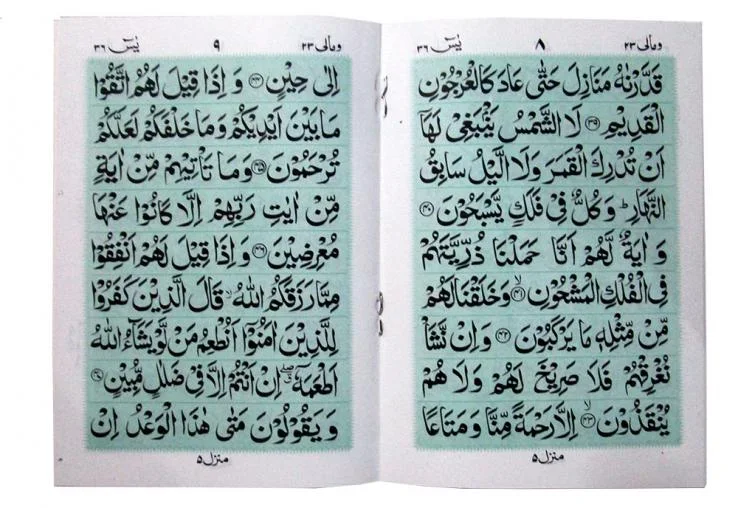 ومالی ۲۳ ۸ یٰسٓ ۳۶
قَدَّرْنٰهُ مَنَازِلَ حَتّٰى عَادَ كَالْعُرْجُوْنِ
الْقَدِیْمِ ﴿۳۹﴾ لَا الشَّمْسُ یَنْۢبَغِیْ لَهَاۤ
اَنْ تُدْرِكَ الْقَمَرَ وَلَا الَّیْلُ سَابِقُ
النَّهَارِ ؕ وَكُلٌّ فِیْ فَلَكٍ یَّسْبَحُوْنَ ﴿۴۰﴾
وَ اٰیَةٌ لَّهُمْ اَنَّا حَمَلْنَا ذُرِّیَّتَهُمْ
فِی الْفُلْكِ الْمَشْحُوْنِ ﴿۴۱﴾ۙ وَخَلَقْنَا لَهُمْ
مِّنْ مِّثْلِهٖ مَا یَرْكَبُوْنَ ﴿۴۲﴾ وَاِنْ نَّشَاْ
نُغْرِقْهُمْ فَلَا صَرِیْخَ لَهُمْ وَلَا هُمْ
یُنْقَذُوْنَ ﴿۴۳﴾ۙ اِلَّا رَحْمَةً مِّنَّا وَمَتَاعًا
منزل ۵
ومالی ۲۳ ۹ یٰسٓ ۳۶
اِلٰى حِیْنٍ ﴿۴۴﴾ وَ اِذَا قِیْلَ لَهُمُ اتَّقُوْا
مَا بَیْنَ اَیْدِیْكُمْ وَمَا خَلْفَكُمْ لَعَلَّكُمْ
تُرْحَمُوْنَ ﴿۴۵﴾ وَمَا تَاْتِیْهِمْ مِّنْ اٰیَةٍ
مِّنْ اٰیٰتِ رَبِّهِمْ اِلَّا كَانُوْا عَنْهَا
مُعْرِضِیْنَ ﴿۴۶﴾ وَ اِذَا قِیْلَ لَهُمْ اَنْفِقُوْا
مِمَّا رَزَقَكُمُ اللّٰهُ ۙ قَالَ الَّذِیْنَ كَفَرُوْا
لِلَّذِیْنَ اٰمَنُوْۤا اَنُطْعِمُ مَنْ لَّوْ یَشَآءُ اللّٰهُ
اَطْعَمَهٗۤ ۖ اِنْ اَنْتُمْ اِلَّا فِیْ ضَلٰلٍ مُّبِیْنٍ ﴿۴۷﴾
وَ یَقُوْلُوْنَ مَتٰى هٰذَا الْوَعْدُ اِنْ
منزل ۵